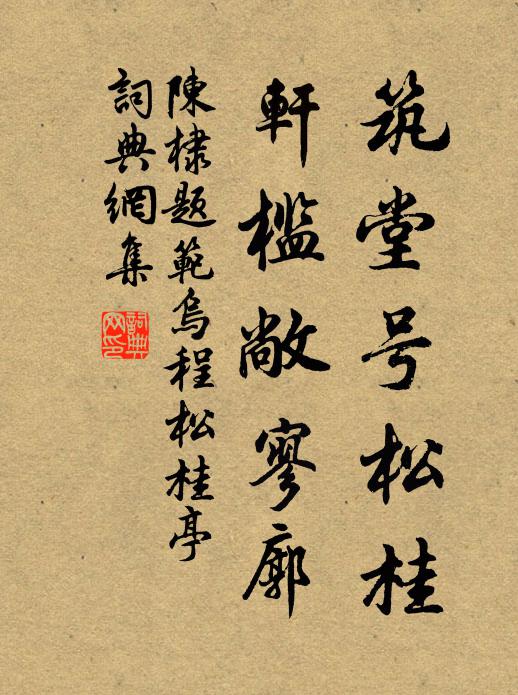 筑堂号松桂
軒檻敞寥廓
陳棣题範烏程松桂亭
詞典網集
詞典
网印